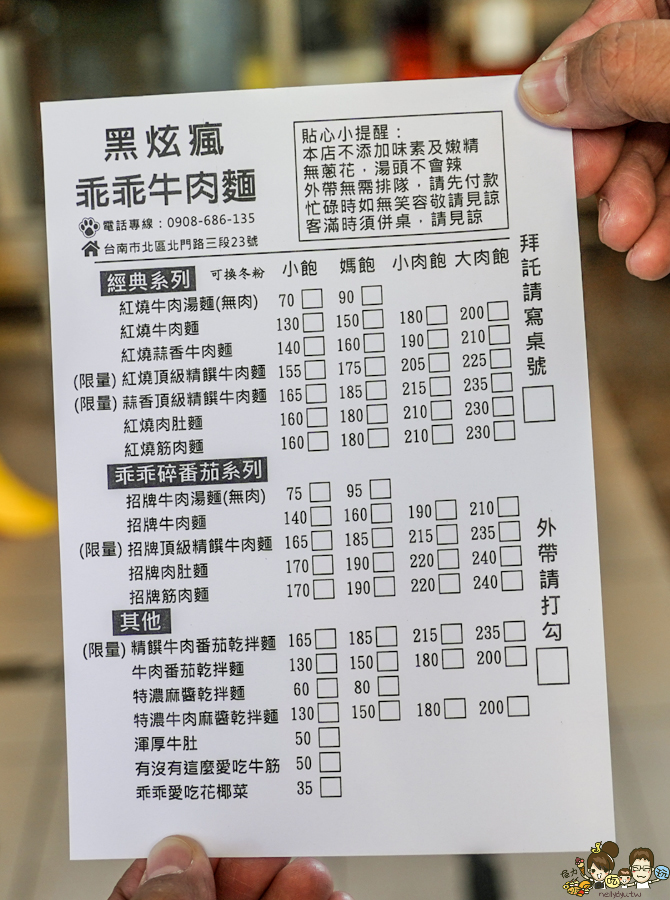 黑炫瘋
乖乖牛肉麵
電話專線：0908-686-135
台南市北區北門路三段23號
貼心小提醒：
本店不添加味素及嫩精
無蔥花，湯頭不會辣
外帶無需排隊，請先付款
忙碌時如無笑容敬請見諒
客滿時須併桌，請見諒
經典系列 可換冬粉 小飽 媽飽 小肉飽 大肉飽
紅燒牛肉湯麵(無肉) 70 90
紅燒牛肉麵 130 150 180 200
紅燒蒜香牛肉麵 140 160 190 210
(限量) 紅燒頂級精饌牛肉麵 155 175 205 225
(限量) 蒜香頂級精饌牛肉麵 165 185 215 235
紅燒肉肚麵 160 180 210 230
紅燒筋肉麵 160 180 210 230
乖乖碎番茄系列
招牌牛肉湯麵(無肉) 75 95
招牌牛肉麵 140 160 190 210
(限量) 招牌頂級精饌牛肉麵 165 185 215 235
招牌肉肚麵 170 190 220 240
招牌筋肉麵 170 190 220 240
其他
(限量) 精饌牛肉番茄乾拌麵 165 185 215 235
牛肉番茄乾拌麵 130 150 180 200
特濃麻醬乾拌麵 60 80
特濃牛肉麻醬乾拌麵 130 150 180 200
渾厚牛肚 50
有沒有這麼愛吃牛筋 50
乖乖愛吃花椰菜 35
拜託請寫桌號
外帶請打勾